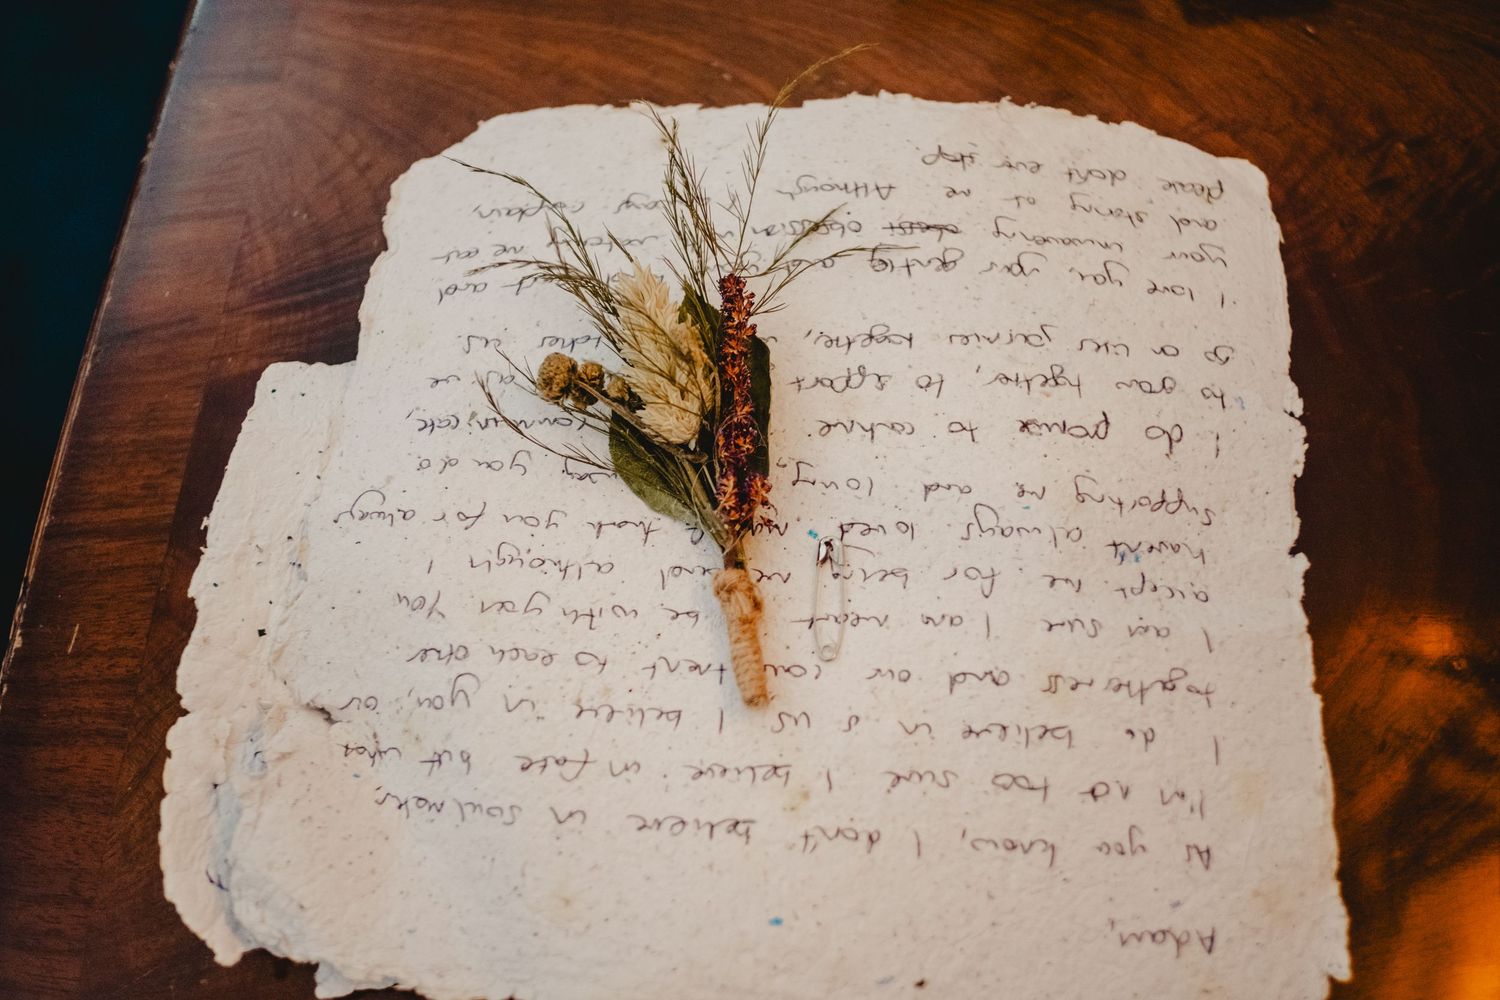 Adam,
As you know, I don't believe in soulmates.
I'm not too sure I believe in fate but what
I do believe in is us I believe in you, our
togetherness and our commitment to each other.
I am sure I am meant to be with you. You
accept me for being me and although I
havent always loved myself thank you for always
supporting me and loving the way you do.
I do promise to continue to communicate,
to grow together, to support as we
go on lifes journies together, takes us.
I love you, your gentle and heart and
your unwavering obsession with watching me eat
and staring at me. Although I always complain,
please don't ever stop.